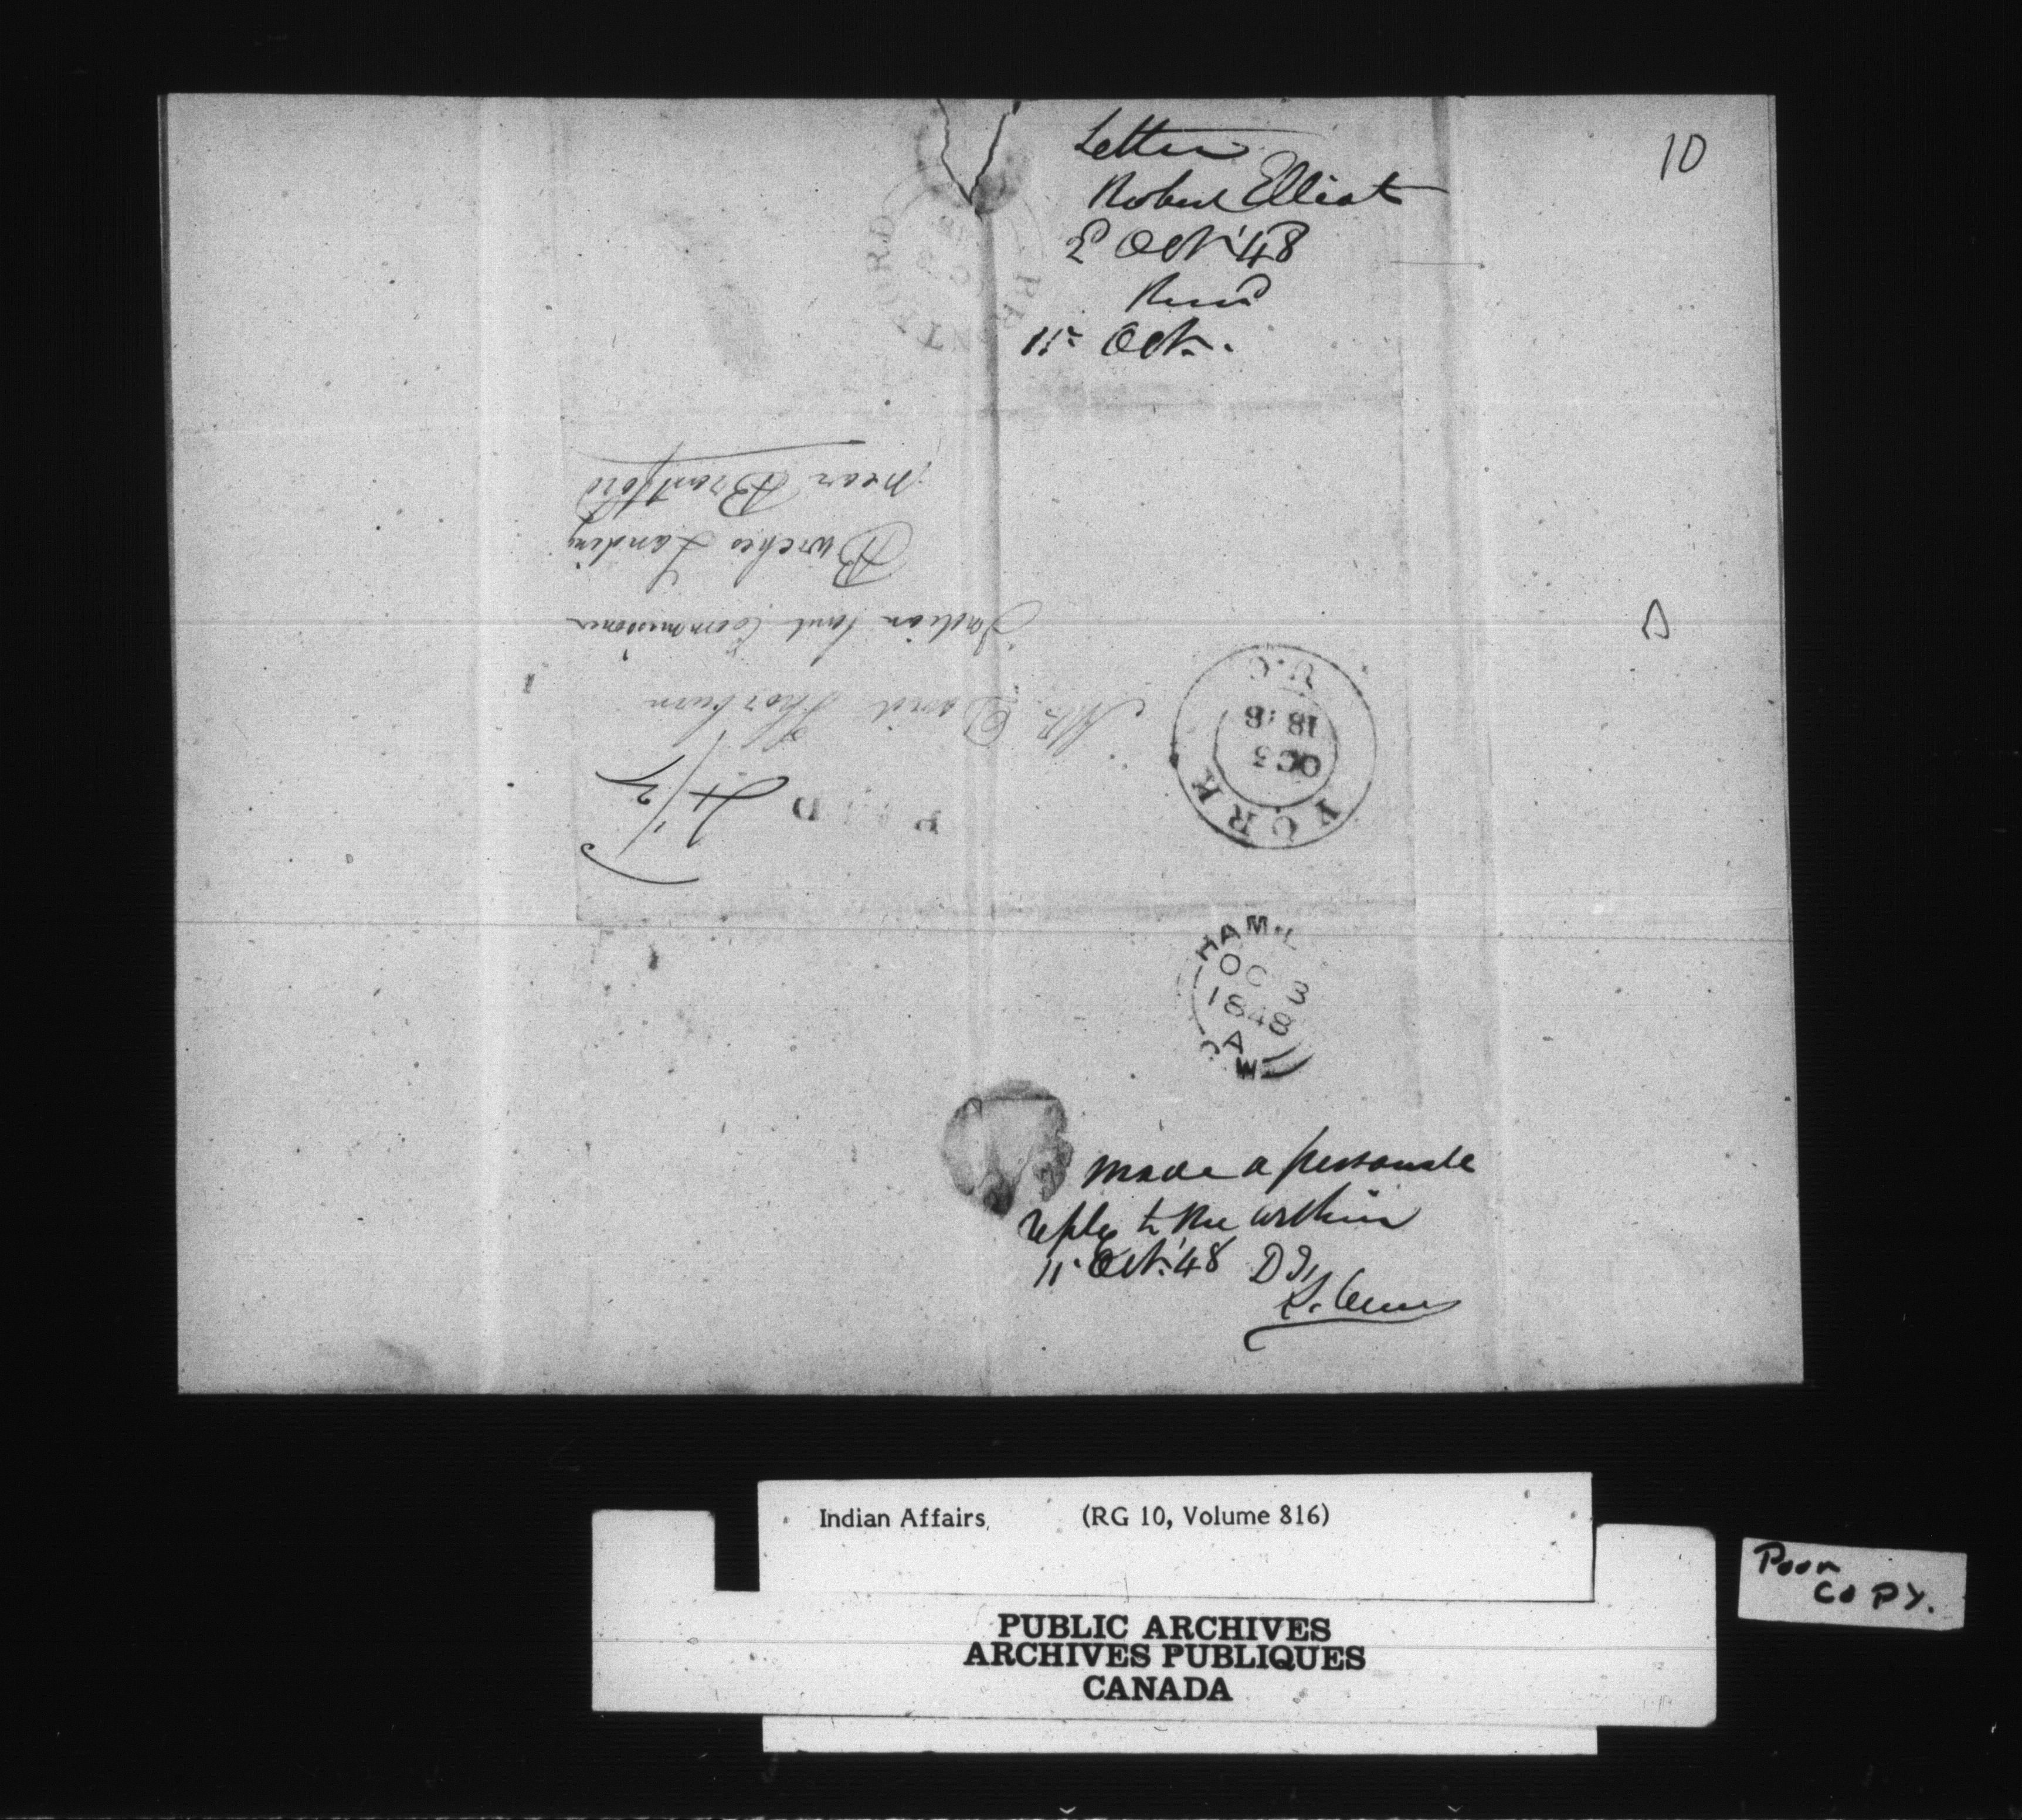 Letter
Robert Elliot
2 Oct '48
Recd
11 Oct.
10
BRANTFORD
near Brantford
Burches Landing
Indian Land Commissioner
Mr. David Thorburn
PAID 4/2
YORK
OC 3
1848
U.C
HAMIL
OC 3
1848
C.W.
made a personale
reply to the within
11 Oct. '48 D T,
Indian Affairs, (RG 10, Volume 816)
PUBLIC ARCHIVES
ARCHIVES PUBLIQUES
CANADA
Poor
COPY.